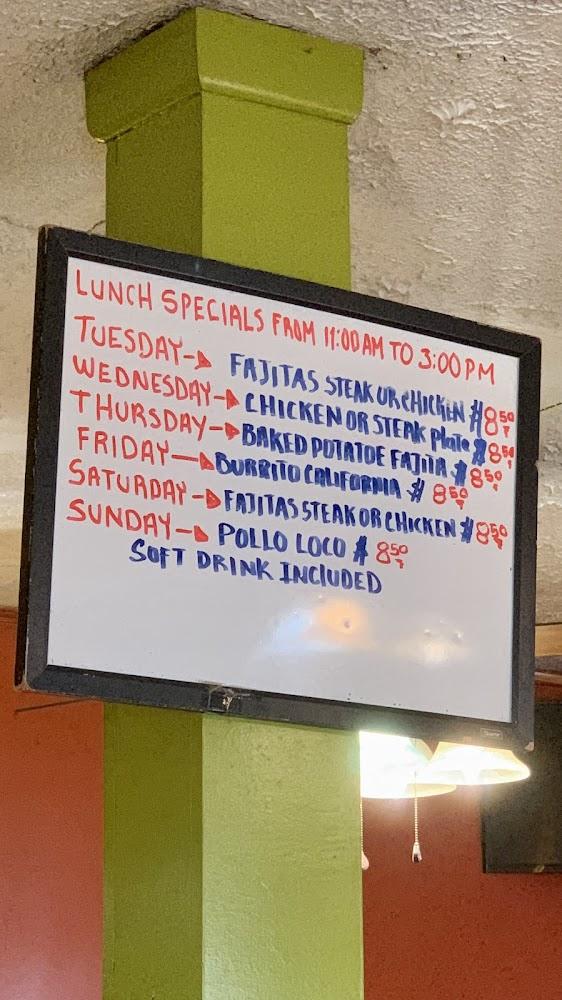 LUNCH SPECIALS FROM 11:00 AM TO 3:00 PM
TUESDAY→ FAJITAS STEAK OR CHICKEN $8.50
WEDNESDAY→ CHICKEN OR STEAK Plate $8.50
THURSDAY→ BAKED POTATOE FAJITA $8.50
FRIDAY→ BURRITO CALIFORNIA $8.50
SATURDAY→ FAJITAS STEAK OR CHICKEN $8.50
SUNDAY→ POLLO LOCO $8.50
SOFT DRINK INCLUDED